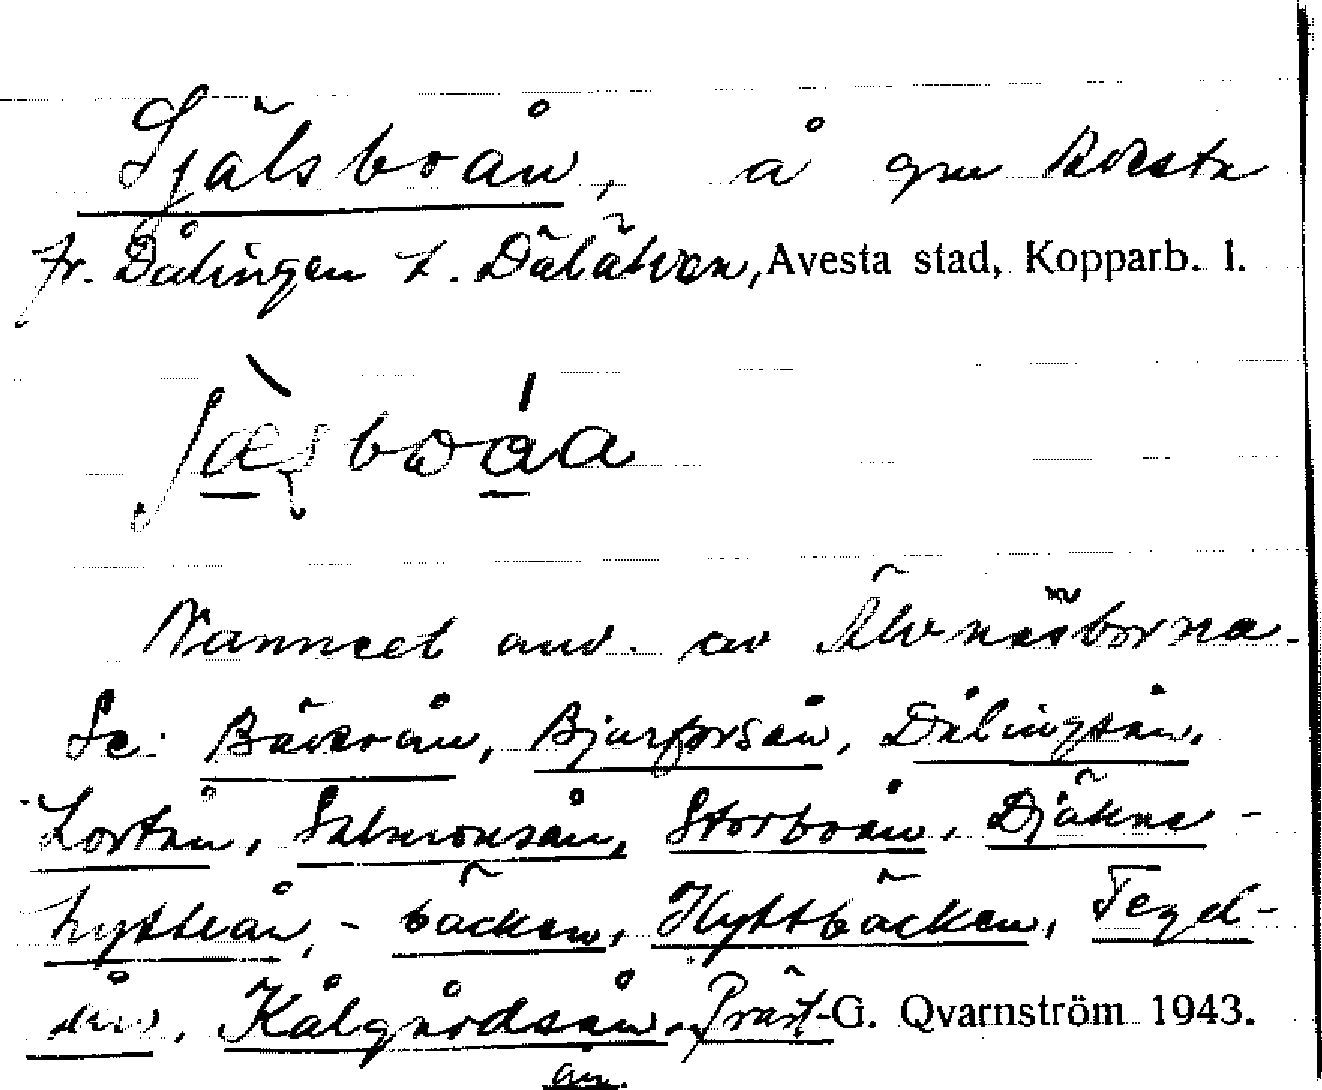 Själsboån, å gm Avesta
fr. Dålingen t. Dalälven, Avesta stad, Kopparb. l.
Namnet anv. av Älvnäsborna.
Se: Bäverån, Bjurforsån, Dålingsån,
Lortån, Salmonsån, Storboån, Djäkne-
hytteån, -bäcken, Hyttbäcken, Tegel-
ån, Kålgårdsån, Präst- G. Qvarnström 1943.
ån.